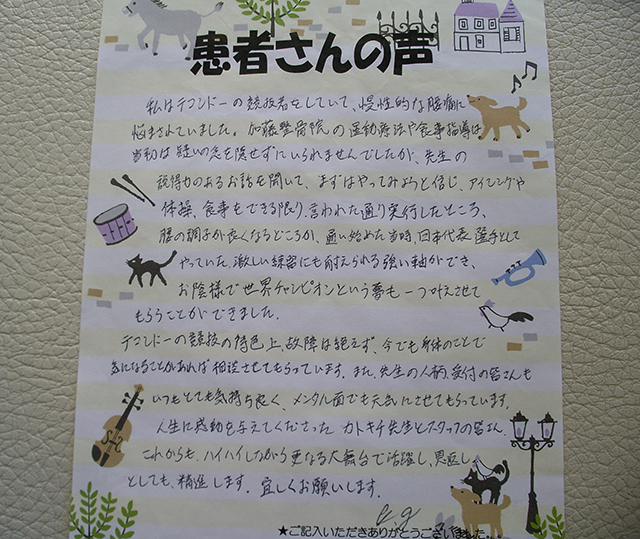 患者さんの声
私はテコンドーの競技者をしていて、慢性的な腰痛に
悩まされていました。加藤整骨院の運動療法や食事指導は
当初は疑いの念を隠せずにいられませんでしたが、先生の
説得力のあるお話を聞いて、まずはやってみようと信じ、アイシングや
体操、食事もできる限り、言われた通り実行したところ、
腰の調子が良くなるどころか、通い始めた当時、日本代表選手として
やっていた激しい練習にも耐えられる強い軸ができ、
お陰様で世界チャンピオンという夢も一つ叶えさせて
もらうことができました。
テコンドーの競技の特色上、故障は絶えず、今でも身体のことで
気になることがあれば相談させてもらっています。また、先生の人柄、受付の皆さんも
いつもとても気持ち良く、メンタル面でも元気にさせてもらっています。
人生に感動を与えてくださったカトキチ先生とスタッフの皆さん、
これからも、ハイハイしながら更なる大舞台で活躍し、恩返し
としても、精進します。宜しくお願いします。
★ご記入いただきありがとうございました